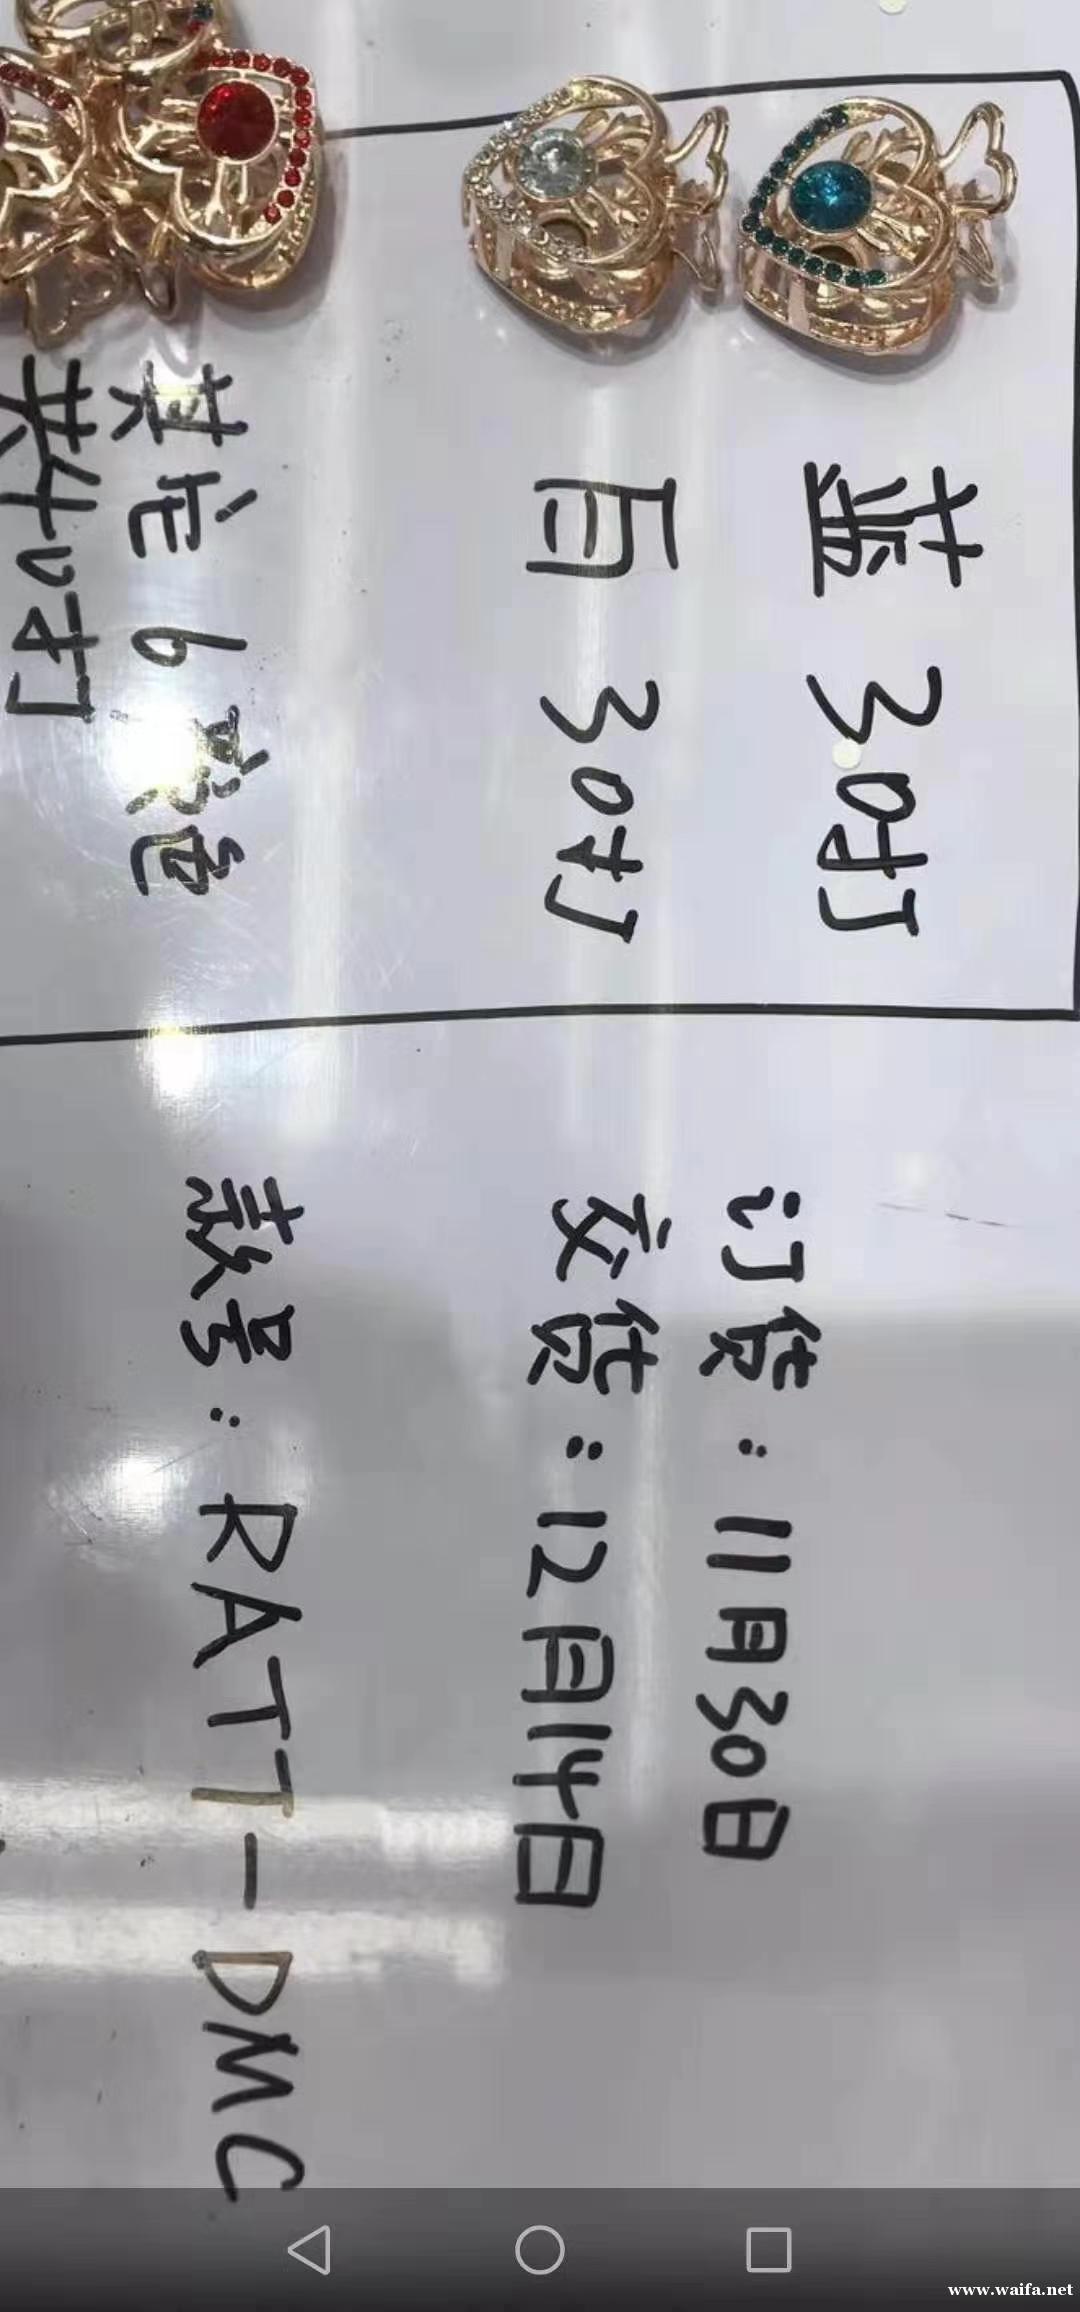 蓝 30打
白 30打
其它6彩色
共140打
订货:11月30日
交货:12月14日
款号:RATT-DMC
www.waifa.net